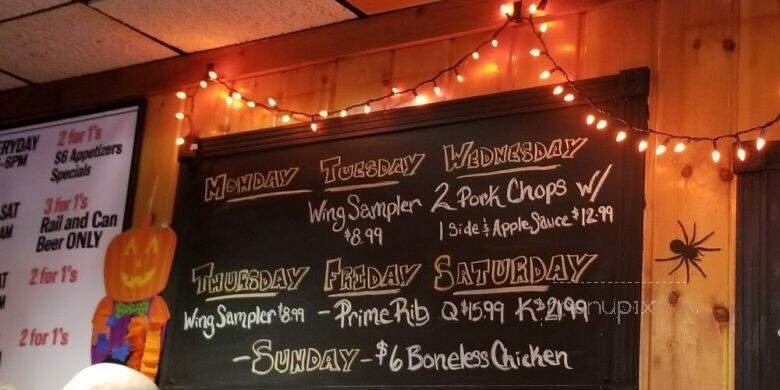 ERYDAY 2 for 1's
-6PM $6 Appetizers
Specials
SAT 3 for 1's
AM Rail and Can
Beer ONLY
AT 2 for 1's
M
2 for 1's
MONDAY TUESDAY WEDNESDAY
Wing Sampler 2 Pork Chops w/
$8.99 1 Side & Apple Sauce $12.99
THURSDAY FRIDAY SATURDAY
Wing Sampler $8.99 - Prime Rib Q $15.99 K $21.99
- SUNDAY - $6 Boneless Chicken
menupix